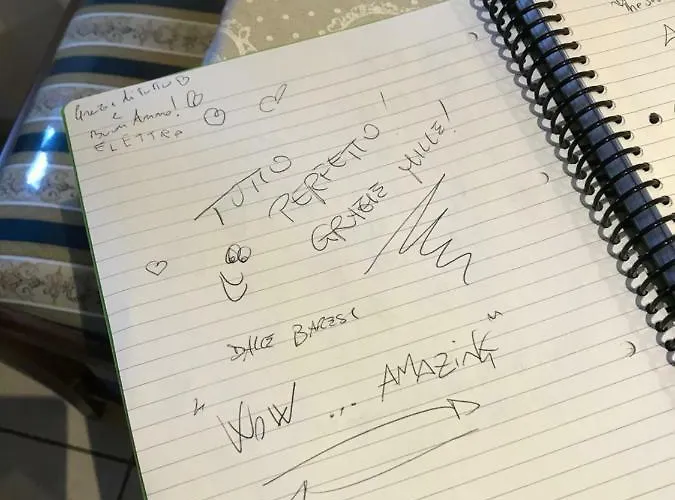 Grazie di tutto
e
Buon Anno!
ELETTRA
TUTTO
PERFETTO!
GRAZIE MILLE!
DALLE BARESI
"WOW ... AMAZING"
he